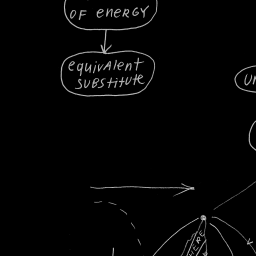 OF ENERGY
EQUIVALENT
SUBSTITUTE